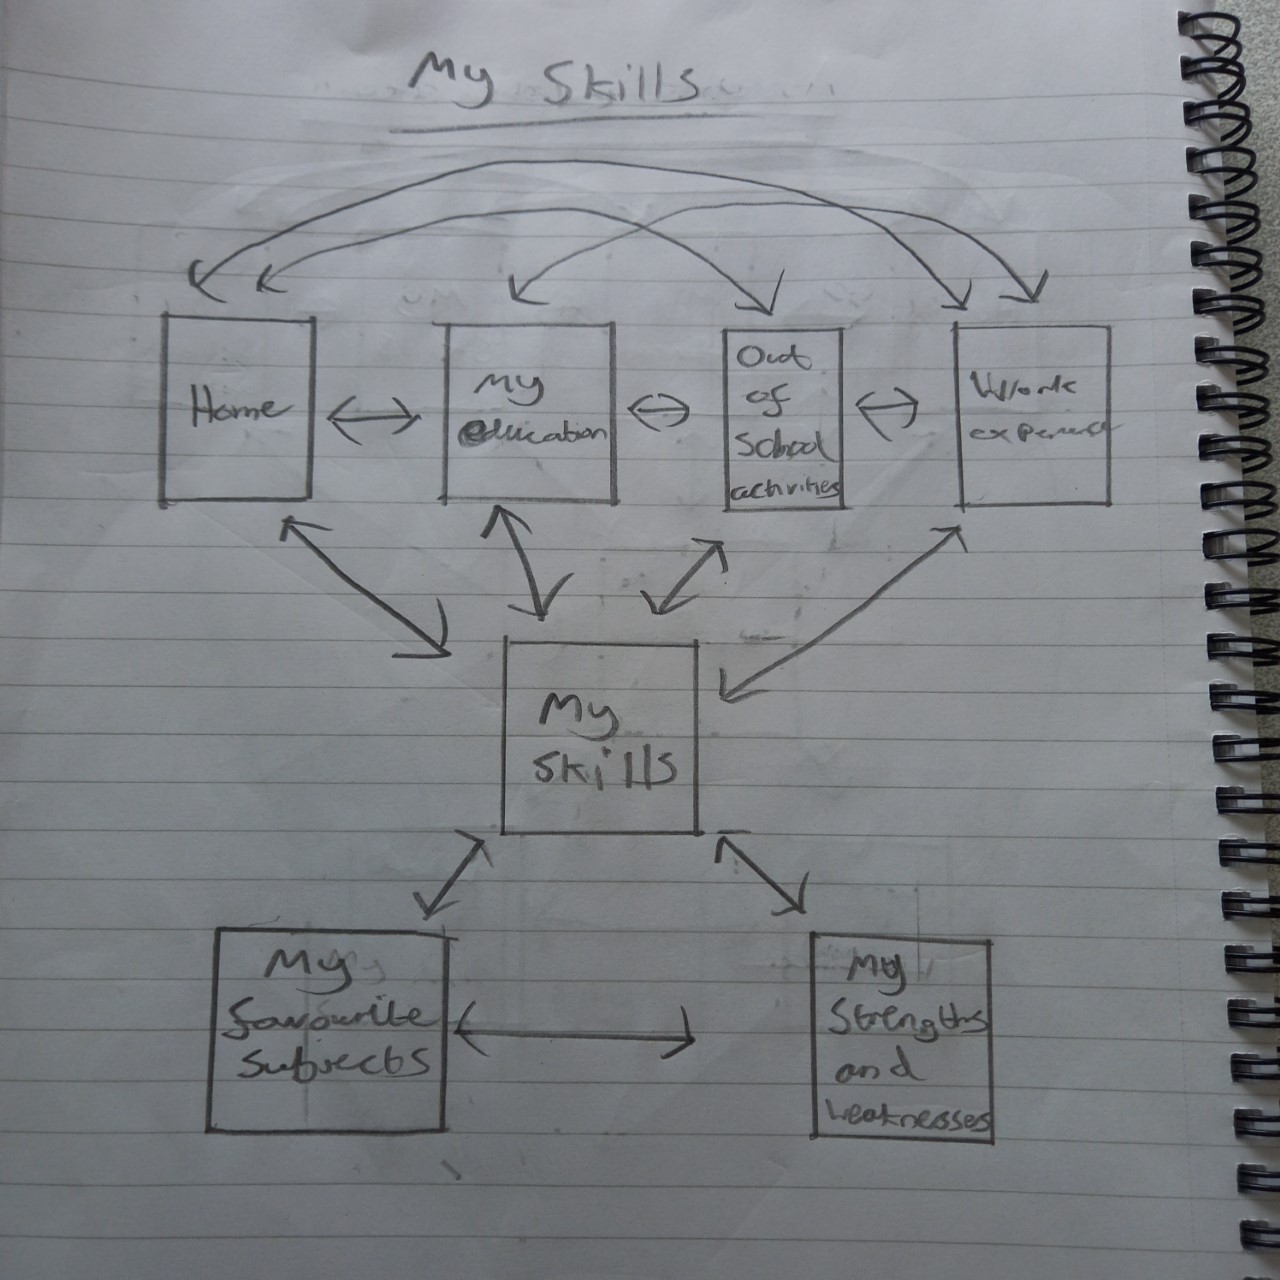 My Skills
Home
My
education
Out
of
School
activities
Work
experience
My
skills
My
favourite
subjects
My
Strengths
and
weaknesses